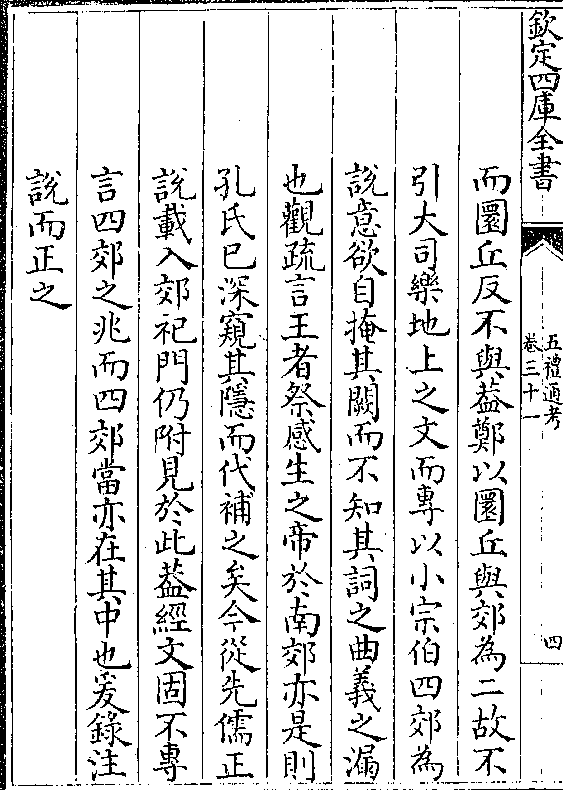 欽定四庫全書
五禮通考
卷三十一
四
而圜丘反不與葢鄭以圜丘與郊為二故不
引大司樂地上之文而專以小宗伯四郊為
說意欲自掩其闕而不知其詞之曲義之漏
也觀疏言王者祭感生之帝於南郊亦是則
孔氏已深窺其隱而代補之矣今從先儒正
說載入郊祀門仍附見於此葢經文固不專
言四郊之兆而四郊當亦在其中也爰錄注
說而正之